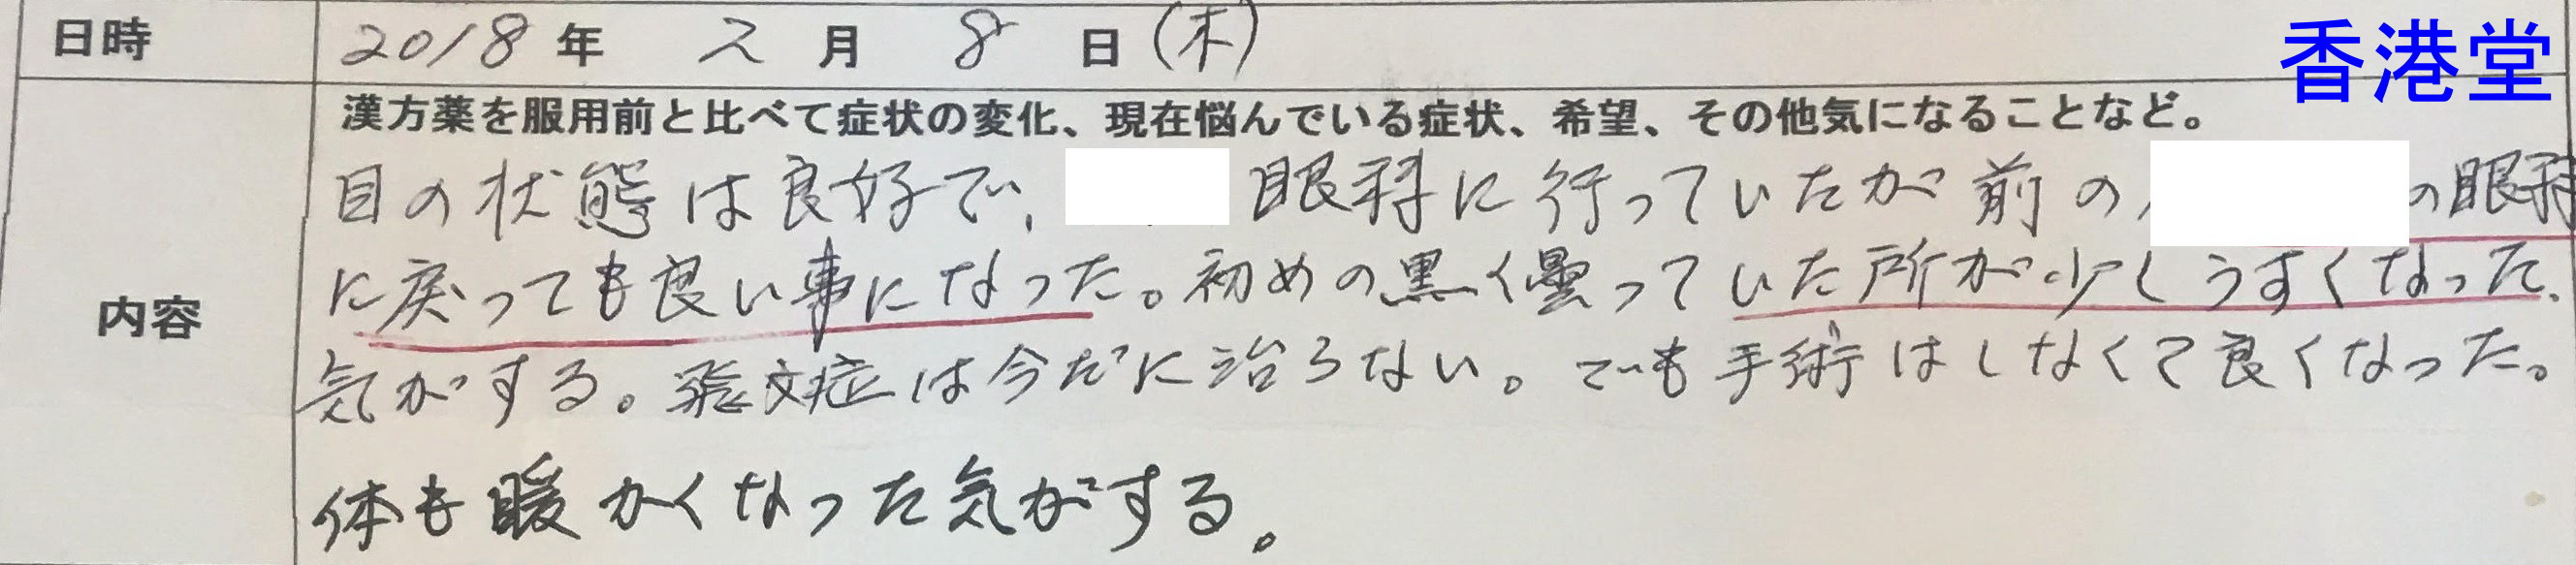 日時 2018年 2月 8日(木)
香港堂
漢方薬を服用前と比べて症状の変化、現在悩んでいる症状、希望、その他気になることなど。
目の状態は良好で、 眼科に行っていたが前の の眼科
に戻っても良い事になった。初めの黒く曇っていた所が少しうすくなった、
内容
気がする。飛文症は今だに治らない。でも手術はしなくて良くなった。
体も暖かくなった気がする。